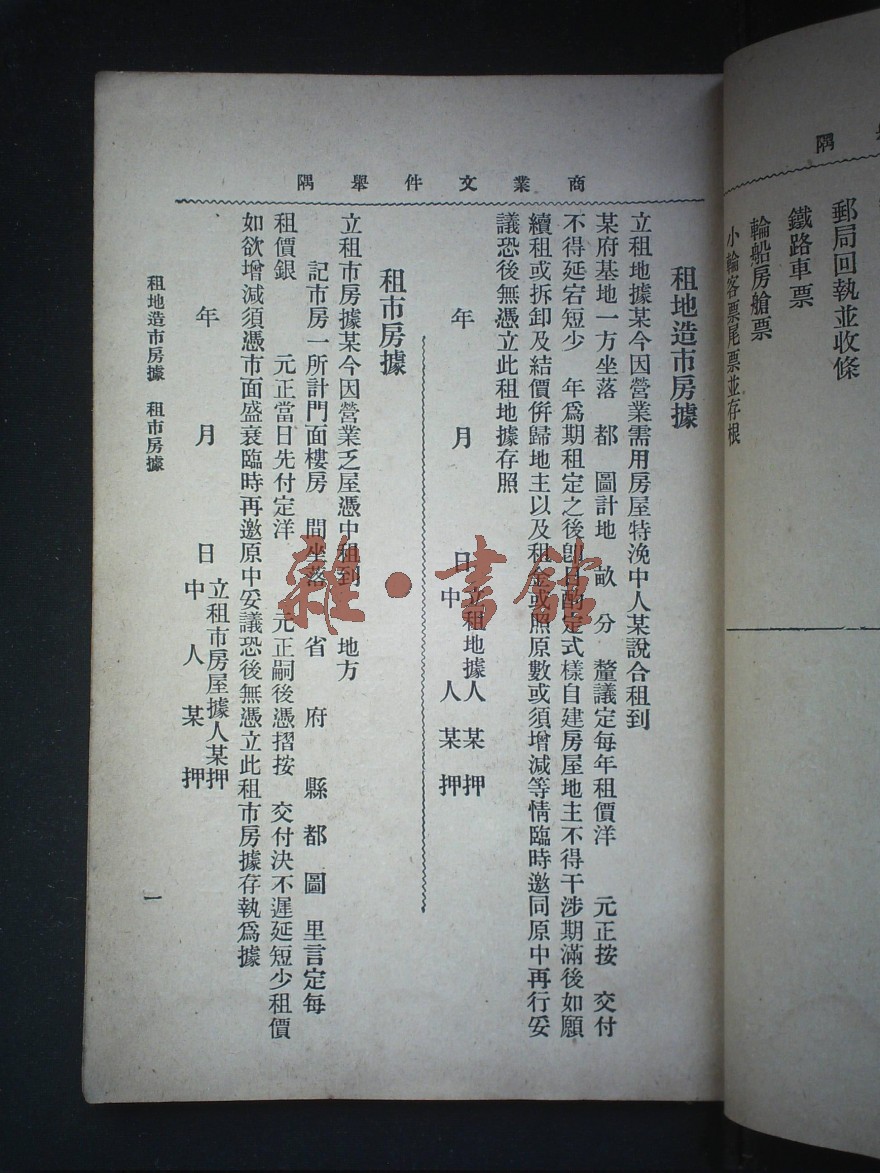 商業文件舉隅
租地造市房據
立租地據某今因營業需用房屋特浼中人某說合租到
某府基地一方坐落　都　圖計地　畝　分　釐議定每年租價洋　　元正按　交付
不得延宕短少　年爲期租定之後卽日酌定式樣自建房屋地主不得干涉期滿後如願
續租或拆卸及結價倂歸地主以及租金或照原數或須增減等情臨時邀同原中再行妥
議恐後無憑立此租地據存照
年　月　日立租地據人某押
中人某押
租市房據
立租市房據某今因營業乏屋憑中租到　　地方
記市房一所計門面樓房　間坐落　　省　　府　　縣　都　圖　里言定每
租價銀　　　元正當日先付定洋　　　元正嗣後憑摺按　交付決不遲延短少租價
如欲增減須憑市面盛衰臨時再邀原中妥議恐後無憑立此租市房據存執爲據
年　月　日立租市房屋據人某押
中人某押
租地造市房據　租市房據
一
雜·書館
隅
郵局回執並收條
鐵路車票
輪船房艙票
小輪客票尾票並存根